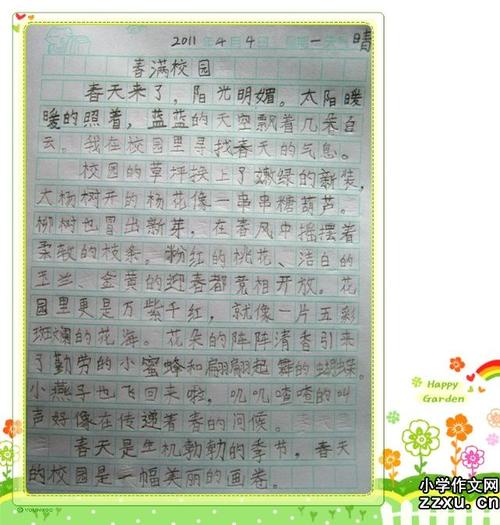 2011年4月4日 星期一 天气 晴
春满校园
春天来了，阳光明媚。太阳暖
暖的照着，蓝蓝的天空飘着几朵白
云。我在校园里寻找春天的气息。
校园的草坪换上了嫩绿的新装，
大杨树开的杨花像一串串糖葫芦。
柳树也冒出新芽，在春风中摇摆着
柔软的枝条。粉红的桃花、洁白的
玉兰、金黄的迎春都竞相开放。花
园里更是万紫千红，就像一片五彩
斑斓的花海。花朵的阵阵清香引来
了勤劳的小蜜蜂和翩翩起舞的蝴蝶。
小燕子也飞回来啦，叽叽喳喳的叫
声好像在传递着春的问候。
春天是生机勃勃的季节，春天
的校园是一幅美丽的画卷。
Happy
Garden
小学作文网
zzxu.cn